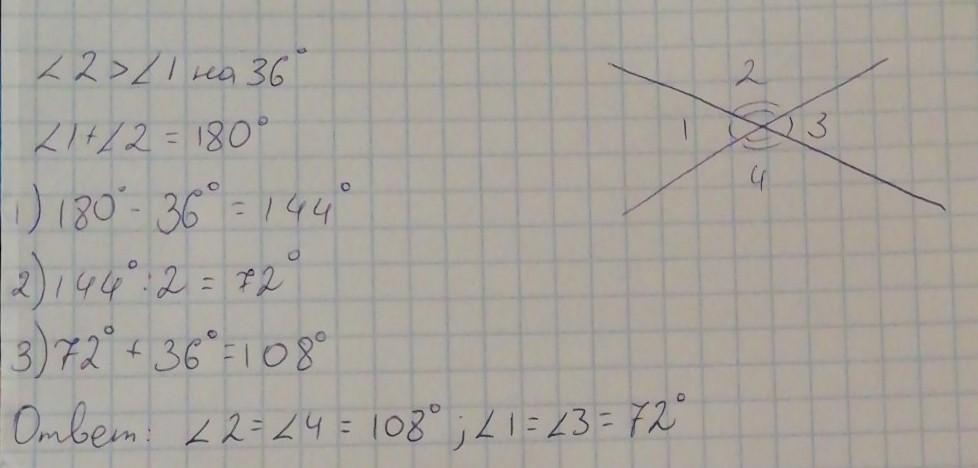 ∠2 > ∠1 на 36°
∠1 + ∠2 = 180°
1) 180° - 36° = 144°
2) 144° : 2 = 72°
3) 72° + 36° = 108°
Ответ: ∠2 = ∠4 = 108°; ∠1 = ∠3 = 72°
2
1
3
4